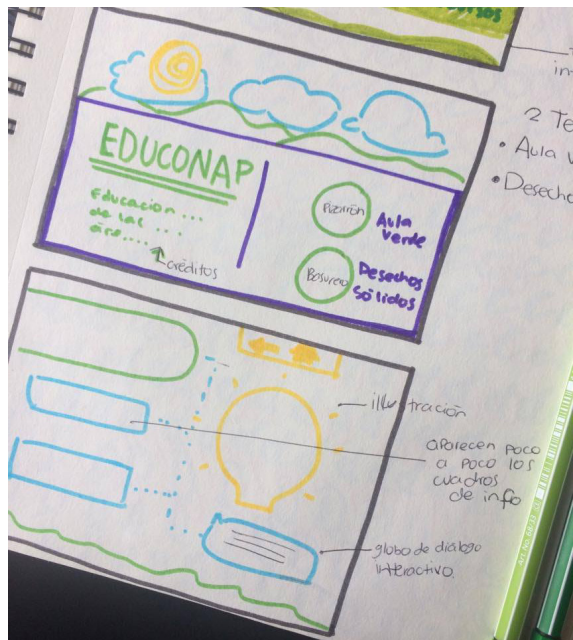 2 Te
• Aula v
• Desecho
EDUCONAP
Educación ...
de las ....
Créditos
Pizarrón
Aula
verde
Basurero
Desechos
sólidos
illustración
aparecen poco
a poco los
cuadros
de info
globo de diálogo
interactivo.